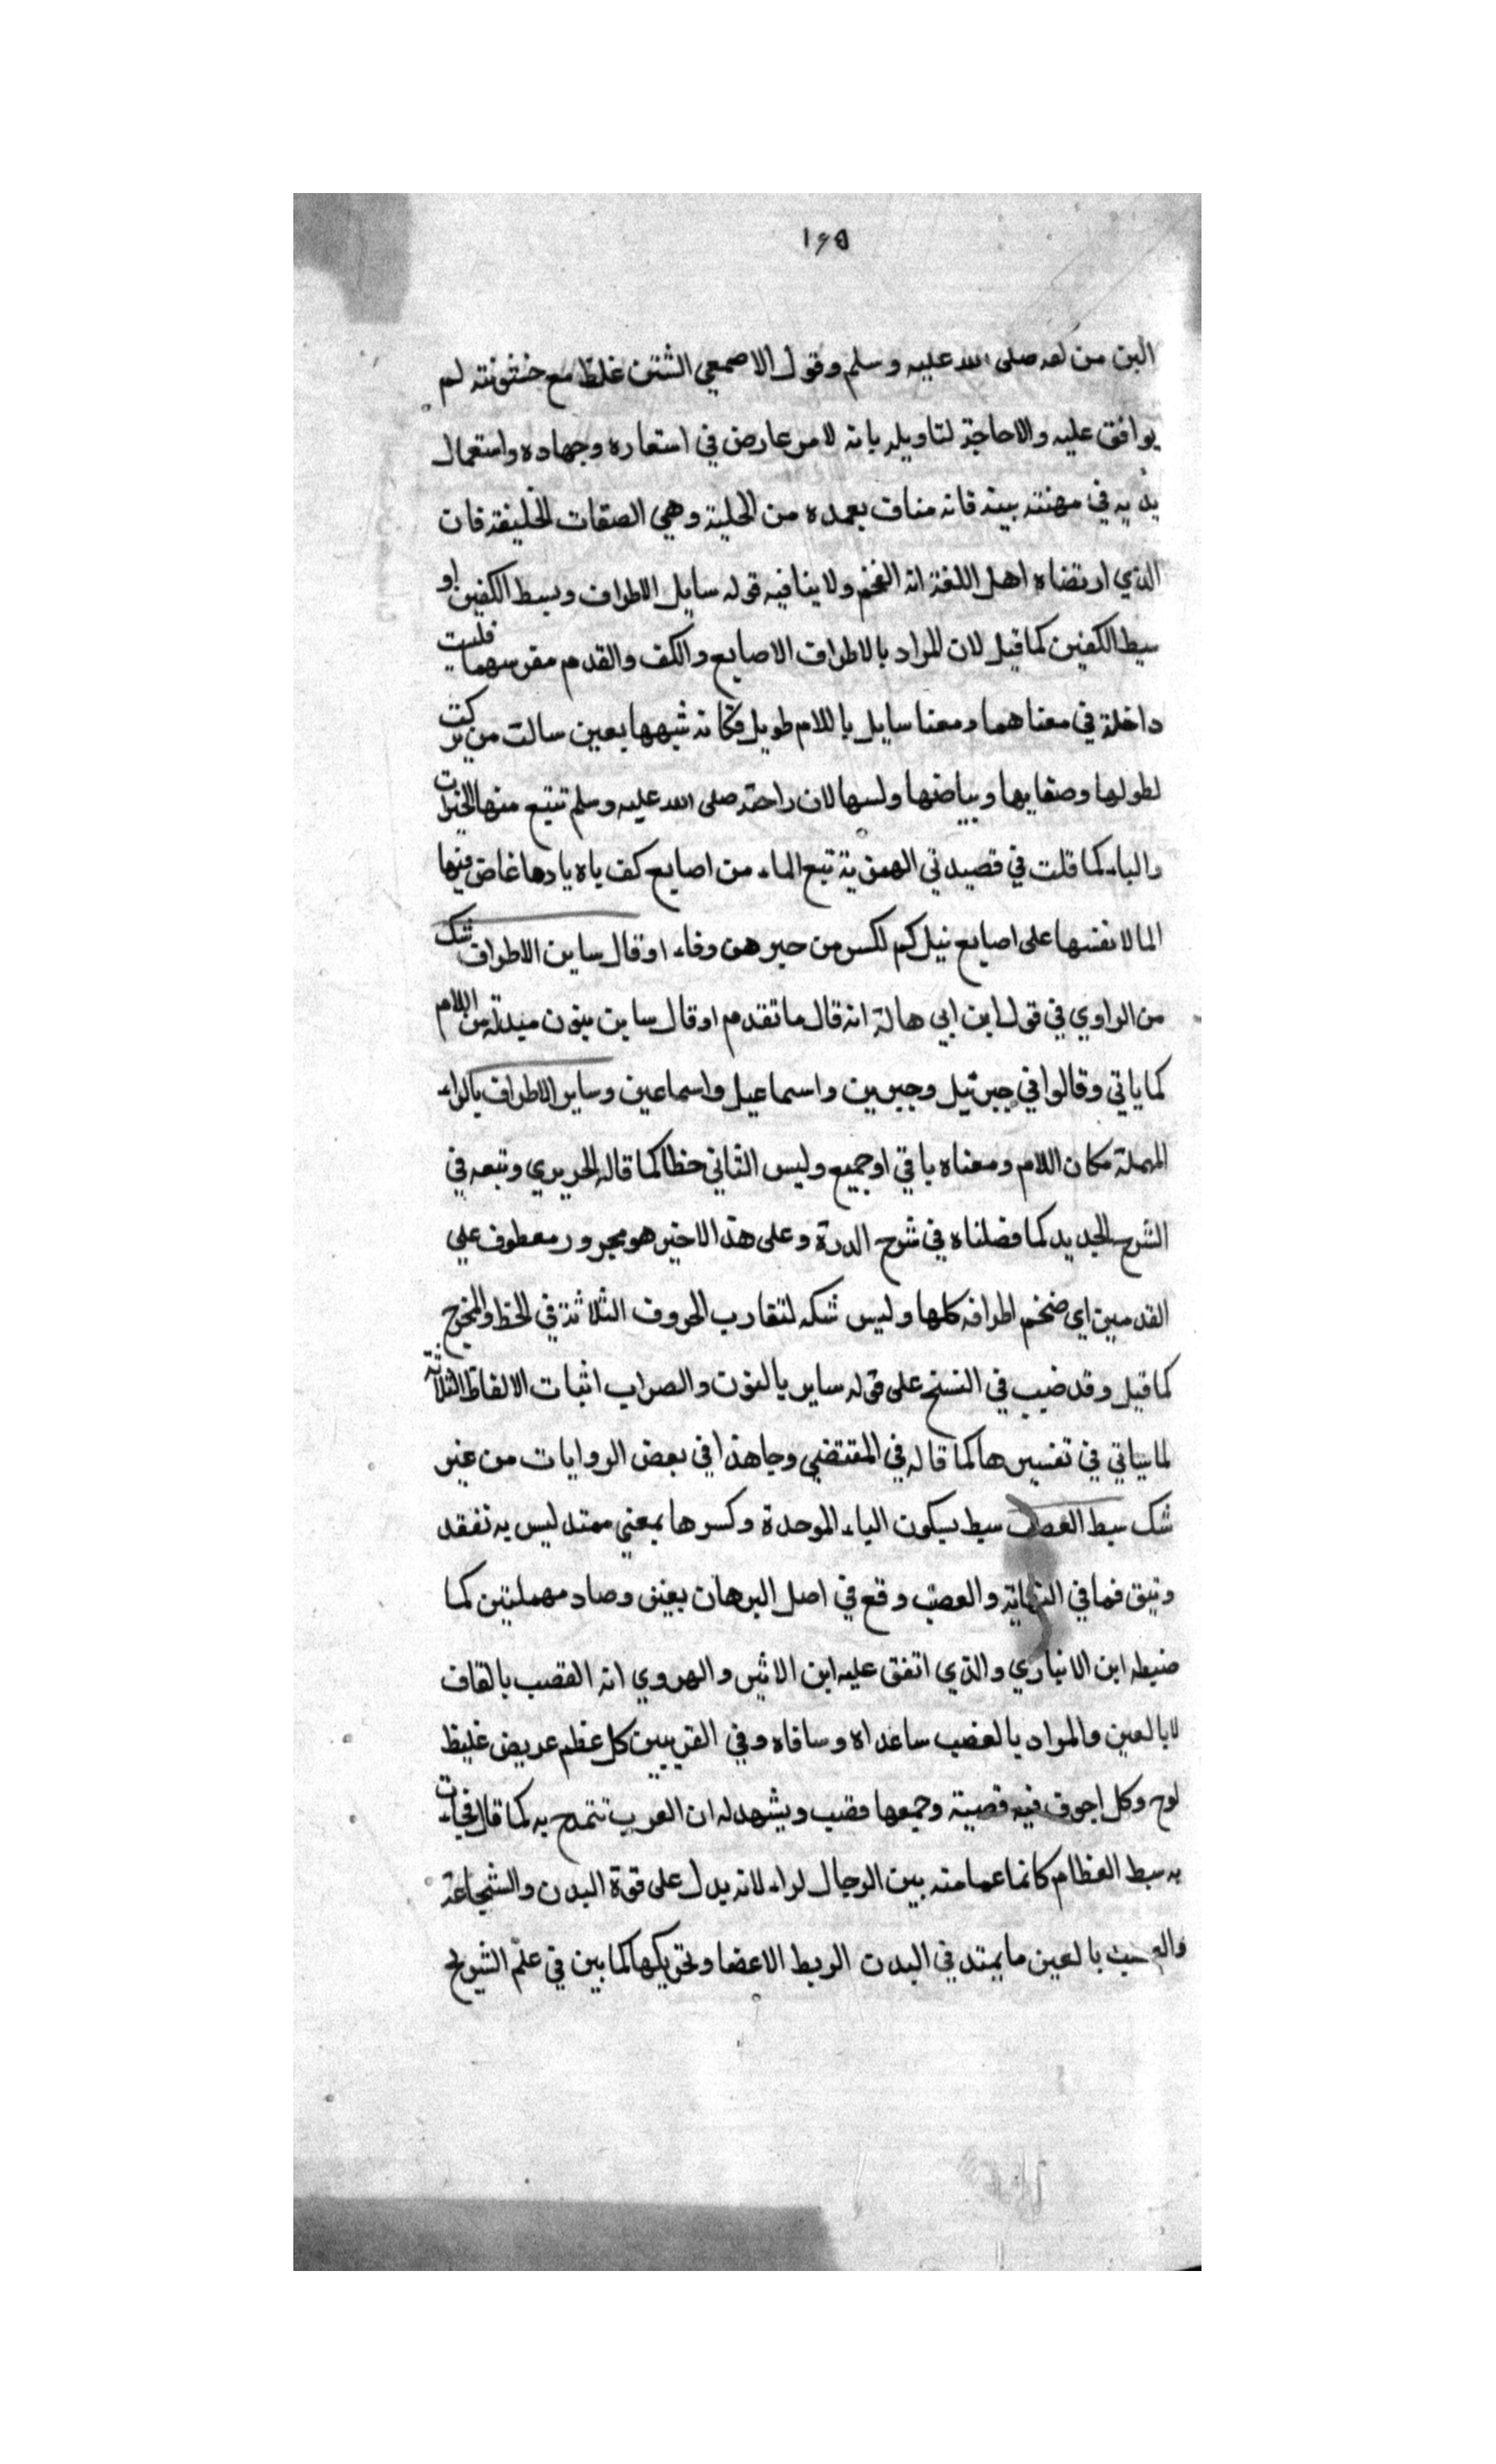 ١٦٥
البن من لعه صلى الله عليه وسلم وقول الاصمعي الشثن غلظ مع خشونته لم
يوافق عليه والاحاجة لتاويله بانه لامر عارض في استعاره وجهاده واستعمال
يديه في مهنته بيته فانه مناف بعمده من الحلية وهي الصفات الخليقة فان
الذي ارتضاه اهل اللغة انه الفخم ولا ينافيه قوله سايل الاطراف وبسط الكفين او
سبط الكفين كما قيل لان المراد بالاطراف الاصابع والكف والقدم مغرسهما فليست
داخلة في معناهما ومعنا سايل باللام طويل فكانه شبهها بعين سالت من بركت
لطولها وصفايها وبياضها ولسها لان راحته صلى الله عليه وسلم تتبع منها الخيرات
والباء كما قلت في قصيدتي الهمزية تتبع الماء من اصابع كف ياه يادها غاض فيها
الما لا نفسها على اصابع نيل كم لكسر من حبرهن وفاء اوقال ساين الاطراف شك
من الراوي في قول ابن ابي هالة انه قال ما تقدم اوقال ساين بنون مبدلة من اللام
كما ياتي وقالوا في جبرئيل وجبرين واسماعيل واسماعين وساير الاطراف بالراء
المهملة مكان اللام ومعناه باقي او جميع وليس الثاني خطا كما قاله الحريري وتبعه في
الشرح الجديد كما فصلناه في شرح الدرة وعلى هذ الاخير هو مجرور معطوف علي
القدمين اي ضخم اطرافه كلها وليس شكه لتقارب الحروف الثلاثة في الخط والمخرج
كما قيل وقد ضبب في النسخ على قوله ساير بالنون والصراب اثبات الالفاظ الثلاثة
لماسياتي في تفسيرها كما قاله في المقتضي وجاهذا في بعض الروايات من غير
شك سبط العصب سبط بسكون الباء الموحدة وكسرها بمعني ممتد ليس به تفقد
ونتق فما في النهاية والعصب وقع في اصل البرهان بعين وصاد مهملتين كما
ضبطه ابن الانباري والذي اتفق عليه ابن الاثير والهروي انه القصب بالقاف
لابالعين والمراد بالعضب ساعداه وساقاه وفي القريبين كل عظم عريض غليظ
لوح وكل اجوف فيه قصبة وجمعها قصب ويشهد له ان العرب تتمدح به كما قال فجات
به سبط العظام كانما عمامته بين الرجال لواء لانه يدل على قوة البدن والشجاعة
والعصب بالعين ما يمتد في البدن الربط الاعضا وتحريكها كما بين في علم التشريح